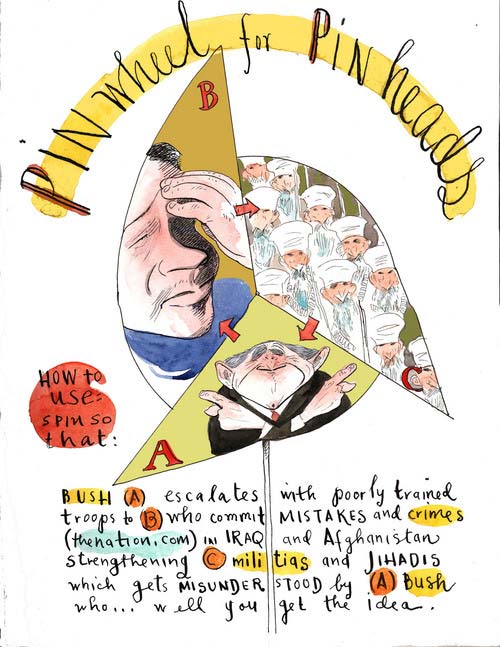 PINwheel for PINheads
B
C
A
HOW to
use:
SPIN SO
that:
BUSH (A) escalates with poorly trained
troops to (B) who commit MISTAKES and crimes
(thenation.com) IN IRAQ and Afghanistan
strengthening (C) militias and JIHADIS
which gets MISUNDERSTOOD by (A) Bush
who... well you get the idea.